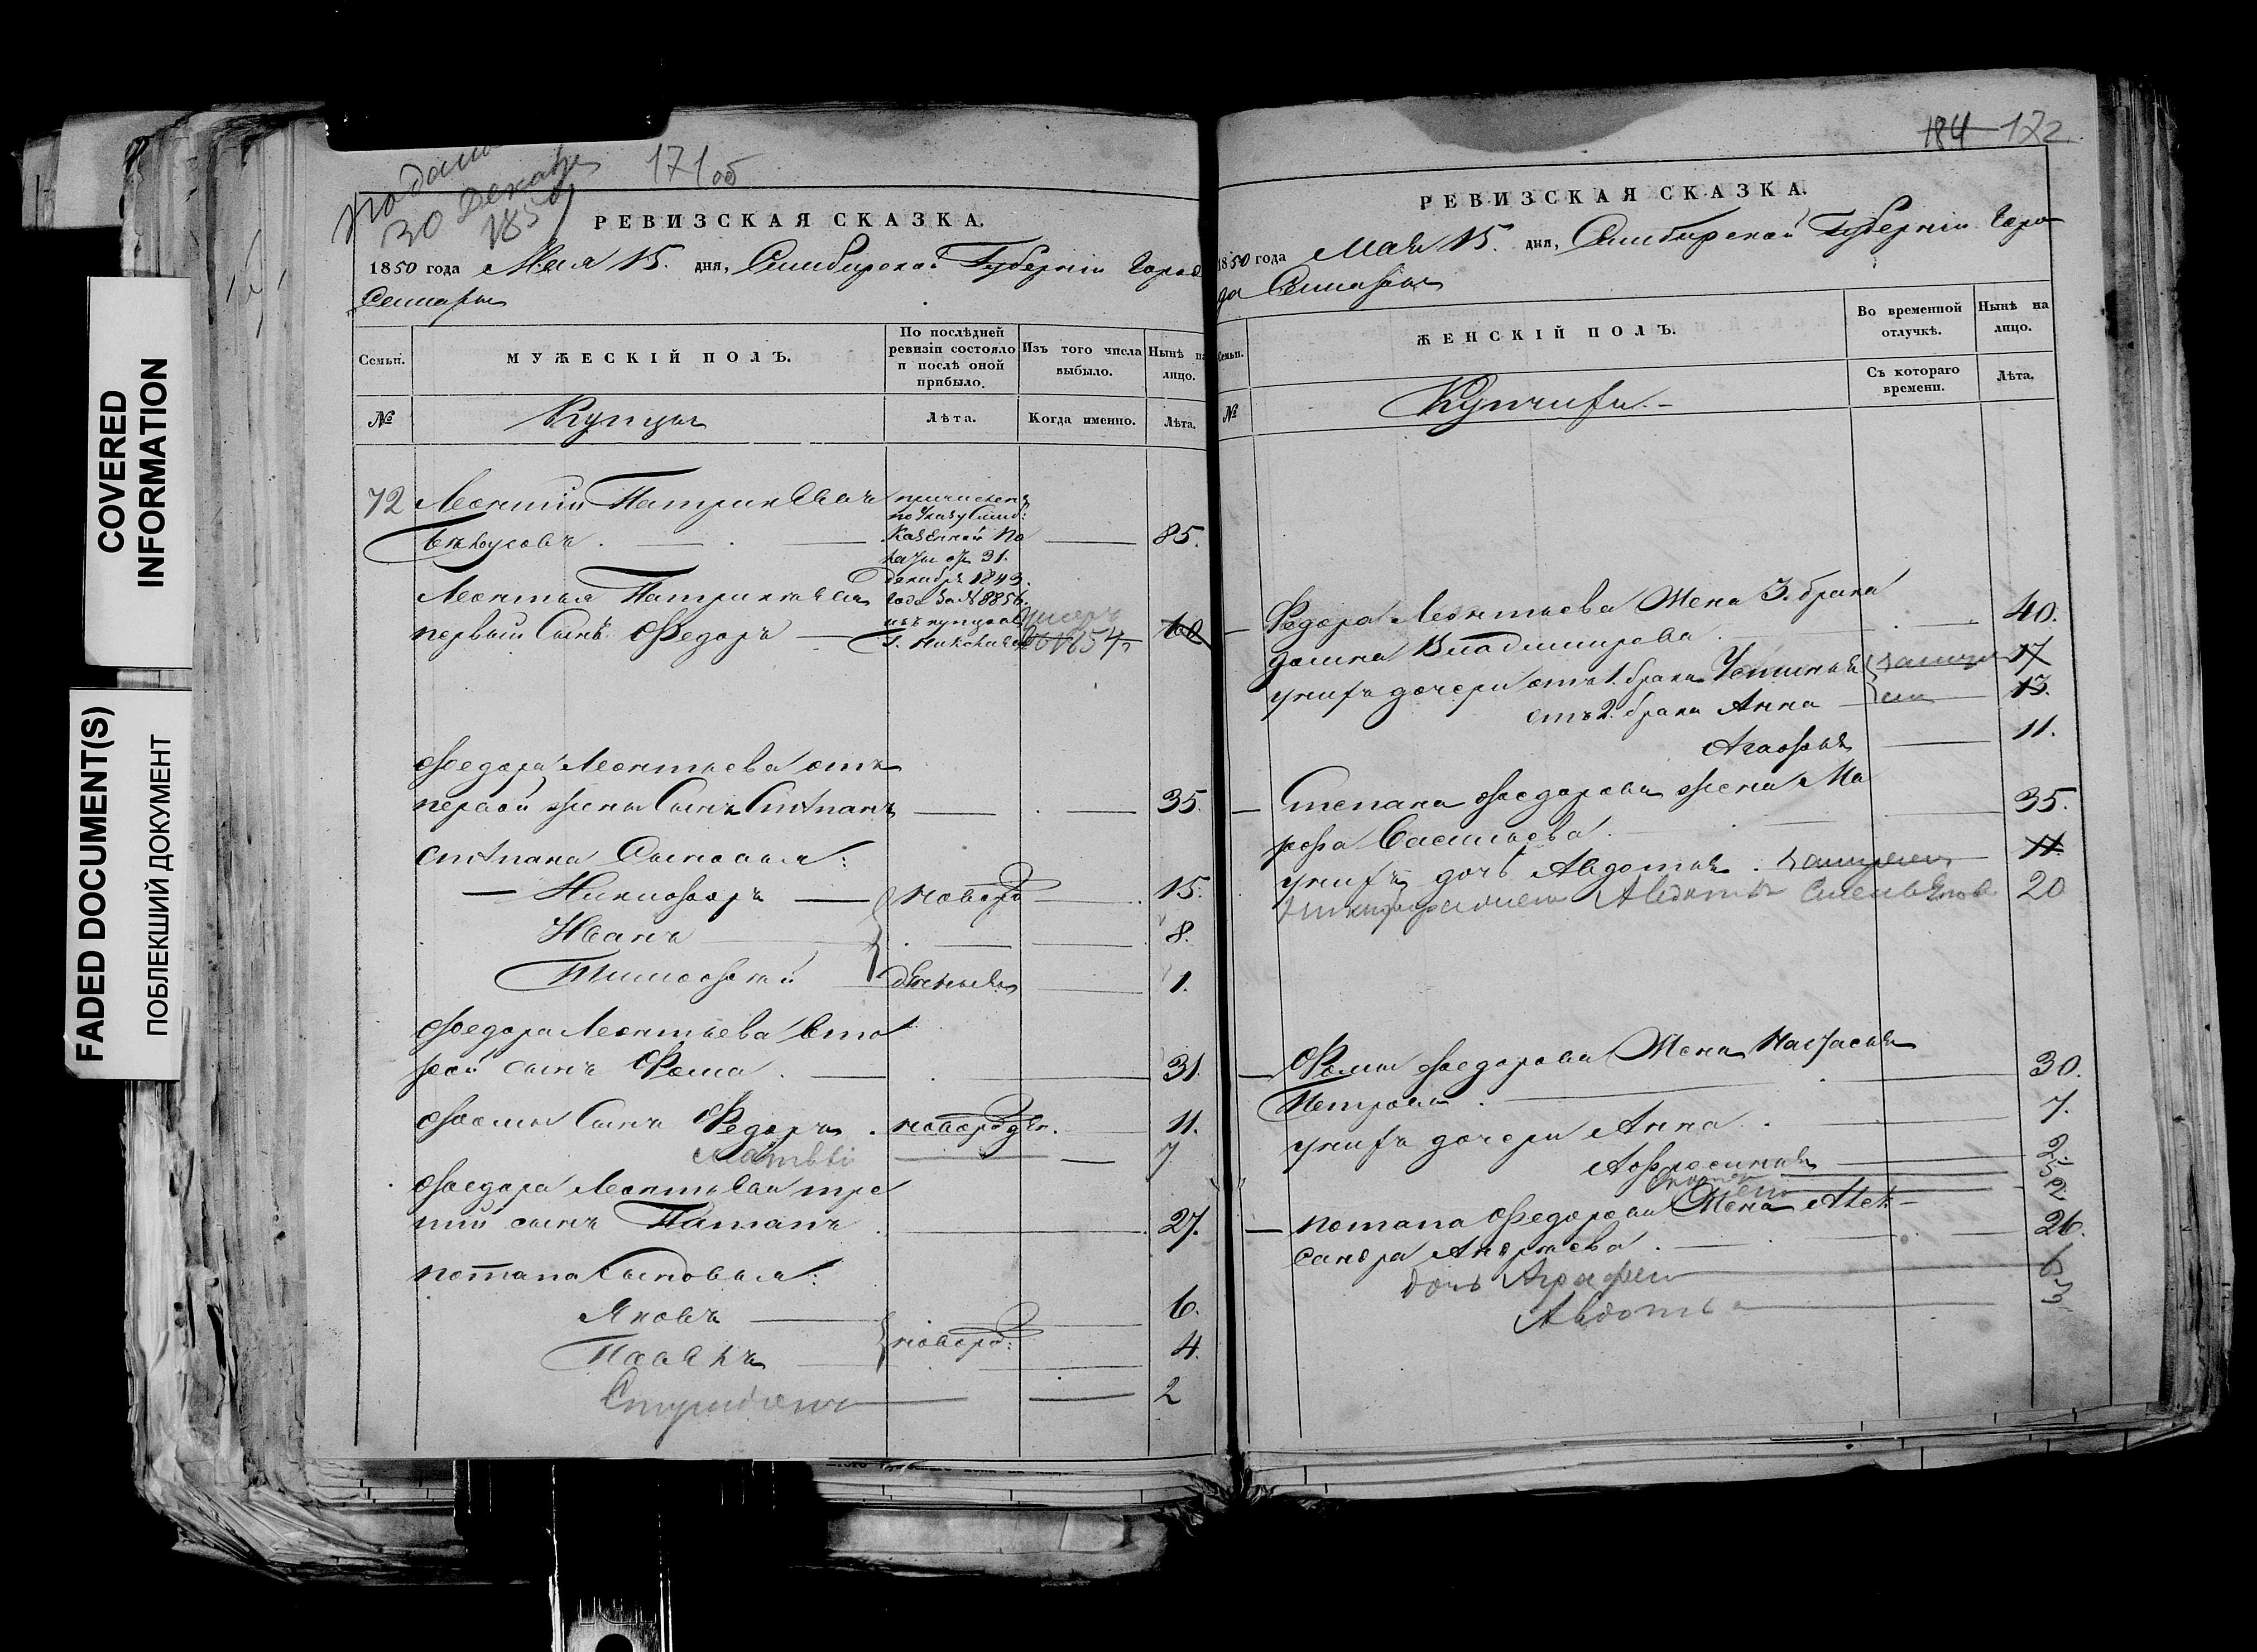 COVERED
INFORMATION
FADED DOCUMENT(S)
ПОБЛЕКШИЙ ДОКУМЕНТ
30 Декабр
185
171 об
РЕВИЗСКАЯ СКАЗКА.
1850 года Мая 15. дня, Симбирской Губернiи Город
Самары
Семьи.
МУЖЕСКIЙ ПОЛЪ.
По послѣдней
ревизiи состояло
и послѣ оной
прибыло.
Изъ того числа
выбыло.
Нынѣ на
лицо.
№
Купцы
Лѣта.
Когда именно.
Лѣта.
72 Леонтiй Патрикѣевъ
Бѣлоусовъ
причисленъ
по Указу Симб:
Казенной Па
латы отъ 31.
декабря 1843.
года за № 8856.
изъ купцовъ
85.
Леонтья Патрикѣева
первый Сынъ Федоръ
60
Федора Леонтьева отъ
первой жены Сынъ Стѣпанъ 35.
Стѣпана Сыновья:
Никифоръ новоро 15.
Иванъ 8.
Тимофей 1.
Федора Леонтьева вто
рой сынъ Фома 31.
Фомы Сынъ Федоръ новорожден. 11.
Матвѣй 7
Федора Леонтьева тре
тiй сынъ Патапъ 27.
Потапа Сыновья:
Яковъ 6.
Павелъ новоро: 4.
Спиридонъ 2
184 172
РЕВИЗСКАЯ СКАЗКА.
1850 года Мая 15. дня, Симбирской Губернiи Горо
да Самары
Семьи.
ЖЕНСКIЙ ПОЛЪ.
Во временной
отлучкѣ.
Нынѣ на
лицо.
Съ котораго
времени.
Лѣта.
№
Купчихи.
Федора Леонтьева Жена 3. брака
Владимирова 40.
у нихъ дочери отъ 1. брака Устинья 17
отъ 2. брака Анна 13.
Агафья 11.
Степана Федорова жена Ма
рфа Васильева 35.
у нихъ дочь Авдотья 11.
Авдотья 20
Фомы Федорова Жена Настасья
Петрова 30.
у нихъ дочери Анна 7.
Афросинья 2.
5
2
Потапа Федорова Жена Алек
сандра Андреева 26.
дочь Аграфен 6
Авдотья 3